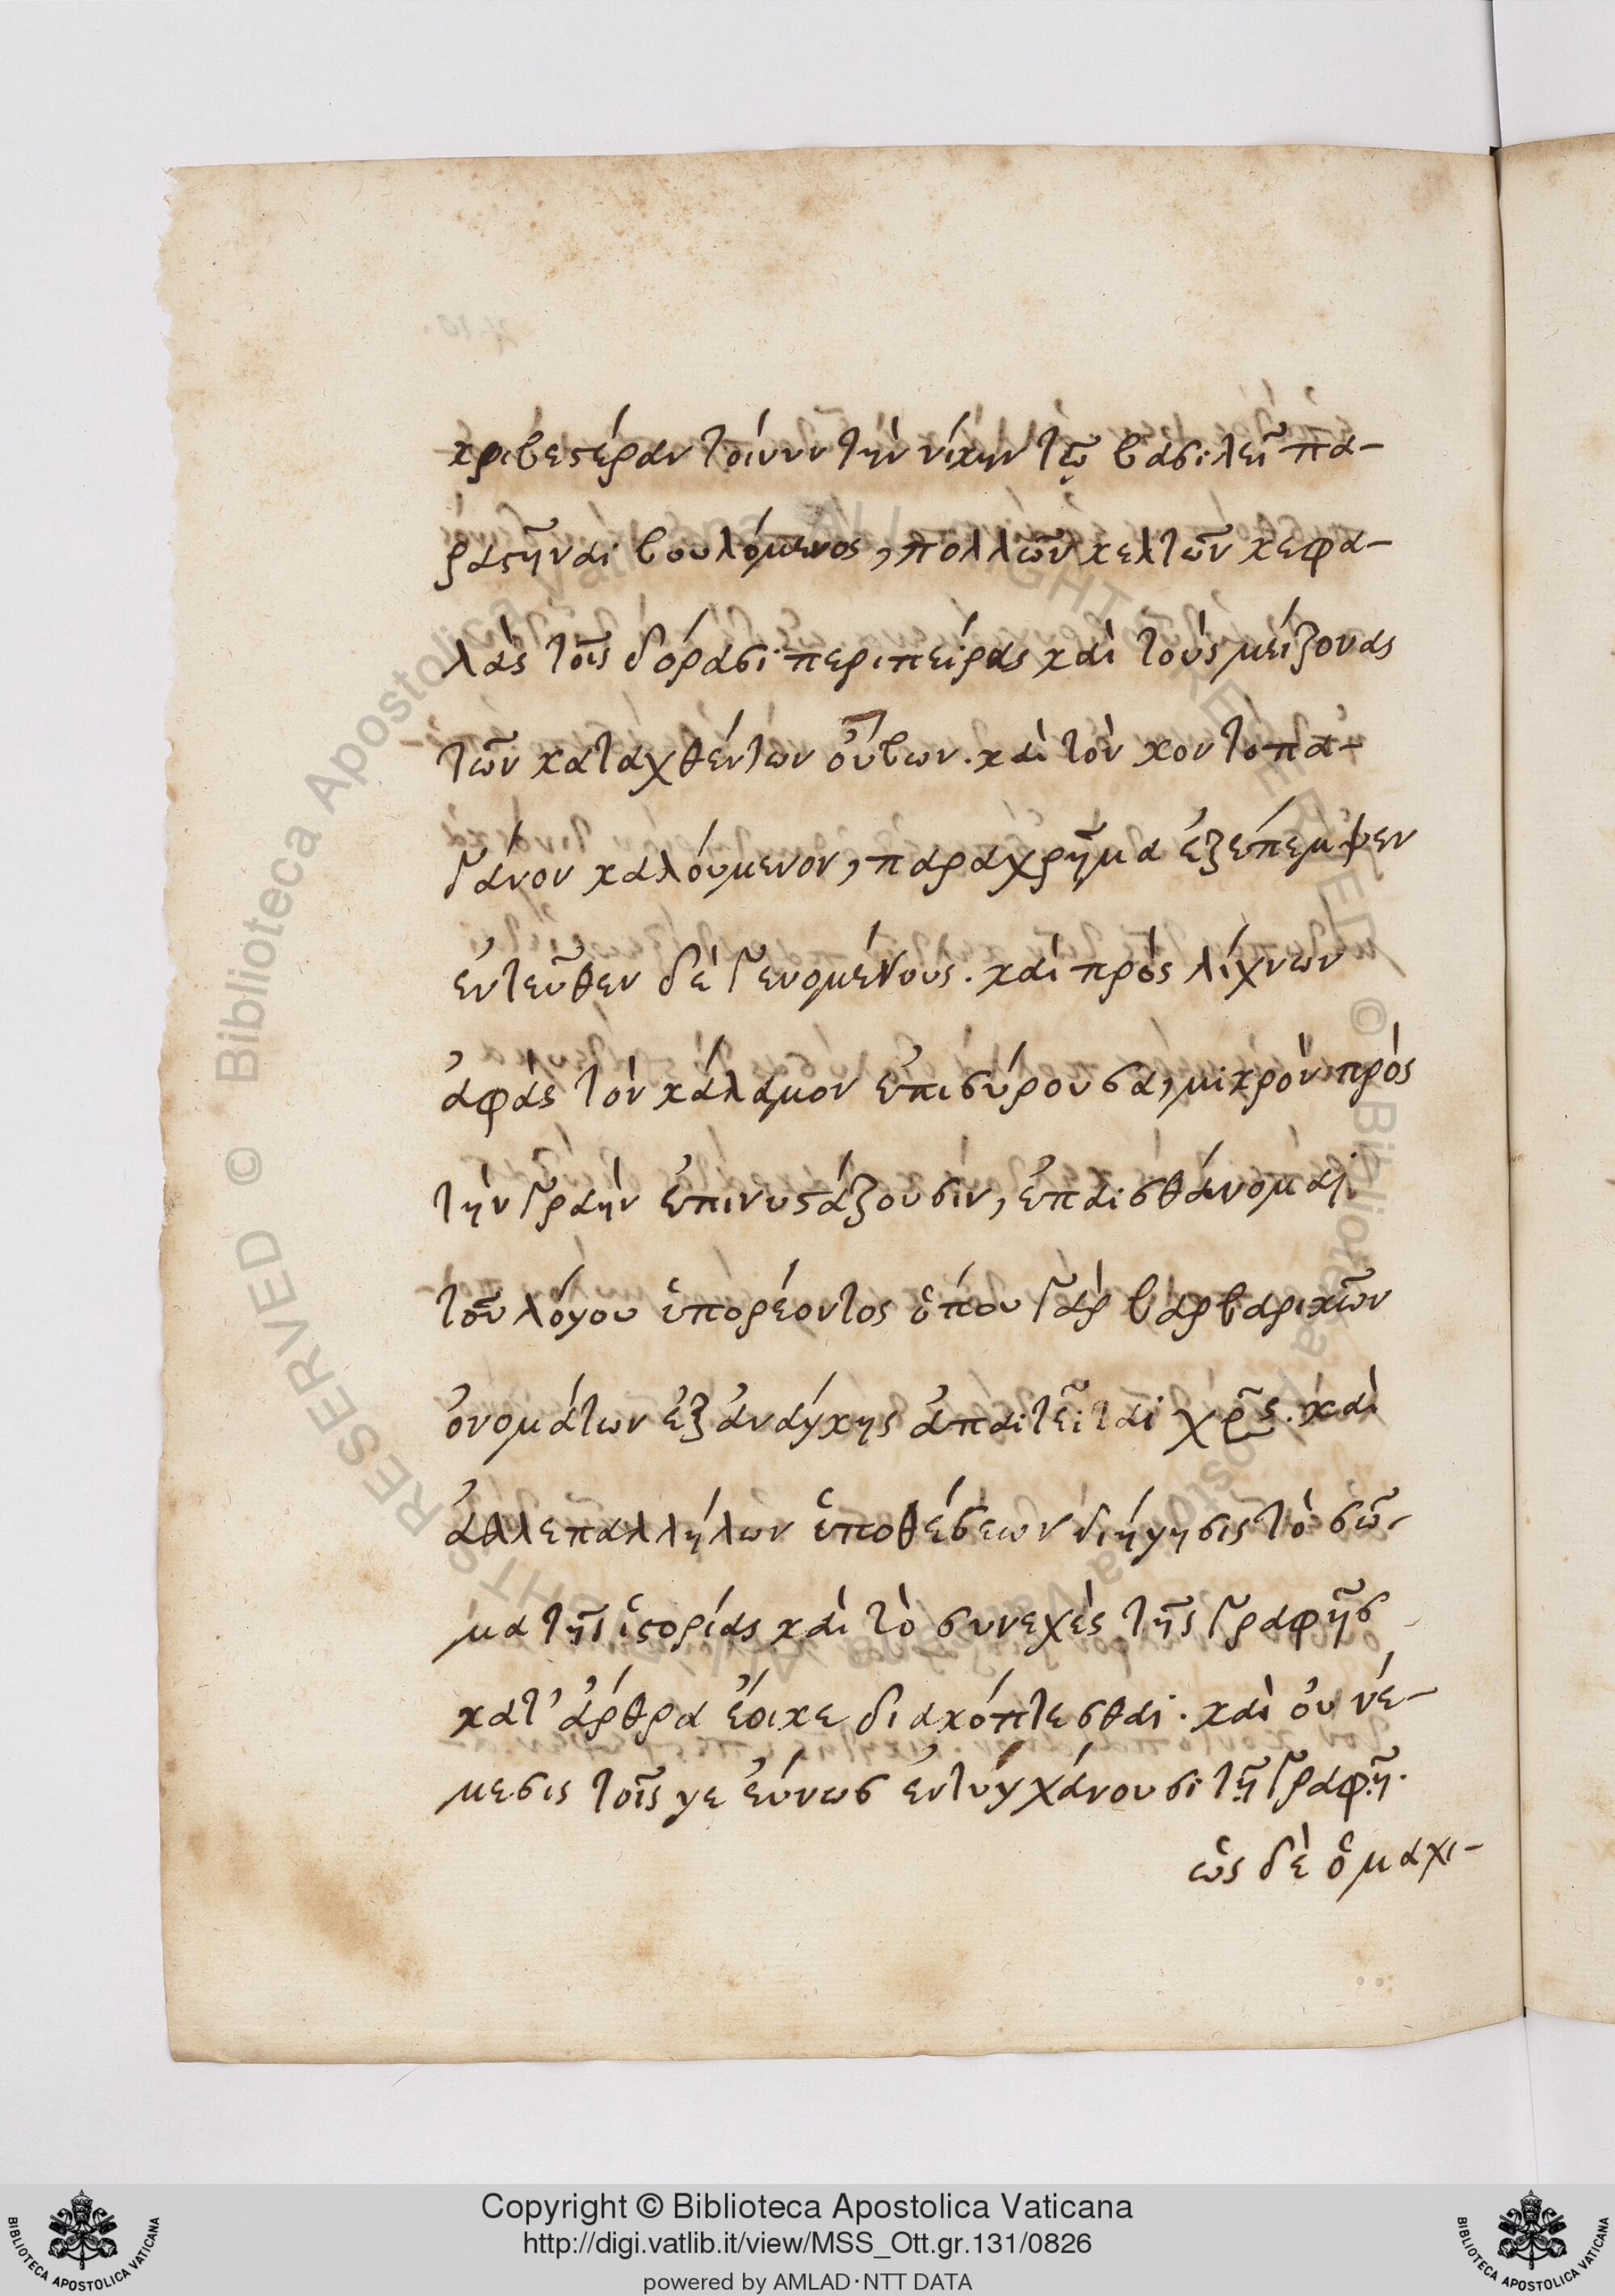 κριβεστέραν τοίνυν τὴν νίκην τῶ βασιλεῖ πα-
ραστῆναι βουλόμενος, πολλῶν κελτῶν κεφα-
λὰς τοῖς δόρασι περιπείρας καὶ τοὺς μείζονας
τῶν καταχθέντων οὕτων. καὶ τὸν κοντοπα-
γάνον καλούμενον, παραχρῆμα ἐξέπεμψεν
ἐντεῦθεν δὲ γενομένους. καὶ πρὸς λίχνων
ἀφὰς τὸν κάλαμον ἐπισύρουσα, μικρὸν πρὸς
τὴν γραὴν ἐπινυστάζουσιν, ἐπαισθάνομαι
τοῦ λόγου ὑπορέοντος ὅπου γὰρ βαρβαρικῶν
ὀνομάτων ἐξἀνάγκης ἀπαιτεῖται χρῆς. καὶ
ἀλλεπαλλήλων ὑποθέσεων διήγησις τὸ σῶ-
μα τῆς ἱστορίας καὶ τὸ συνεχὲς τῆς γραφῆς
κατ' ἄρθρα ἔοικε διακόπτεσθαι. καὶ οὐ νέ-
μεσις τοῖς γε εὔνως ἐντυγχάνουσι τῆ γραφῆ.
ὡς δὲ ὁ μαχι-
Copyright © Biblioteca Apostolica Vaticana
http://digi.vatlib.it/view/MSS_Ott.gr.131/0826
powered by AMLAD·NTT DATA
BIBLIOTECA APOSTOLICA VATICANA
BIBLIOTECA APOSTOLICA VATICANA